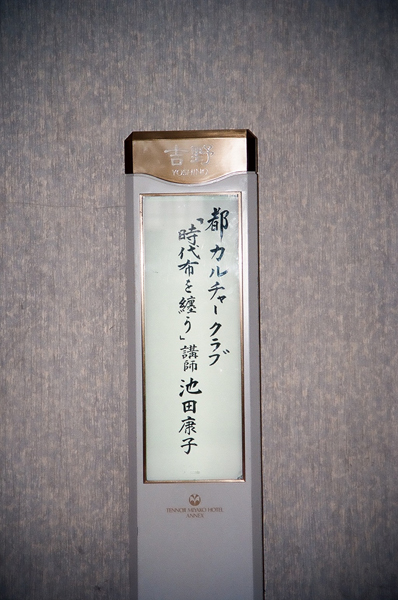 吉野
YOSHINO
都カルチャークラブ
「時代布を纏う」講師 池田康子
RENNOIR MIYAKO HOTEL
ANNEX